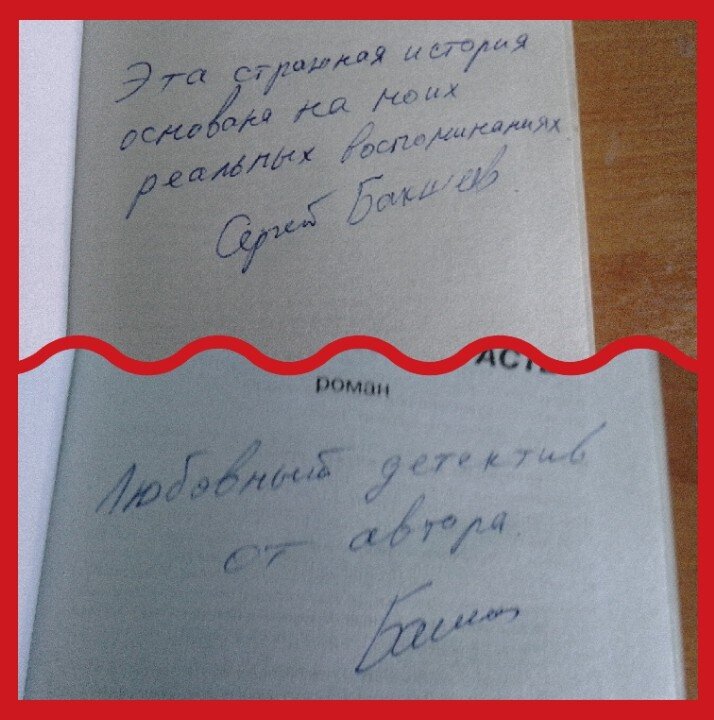 Эта страшная история
основана на моих
реальных воспоминаниях
Сергей Бакшеев.
АСТ
роман
Любовный детектив
от автора.